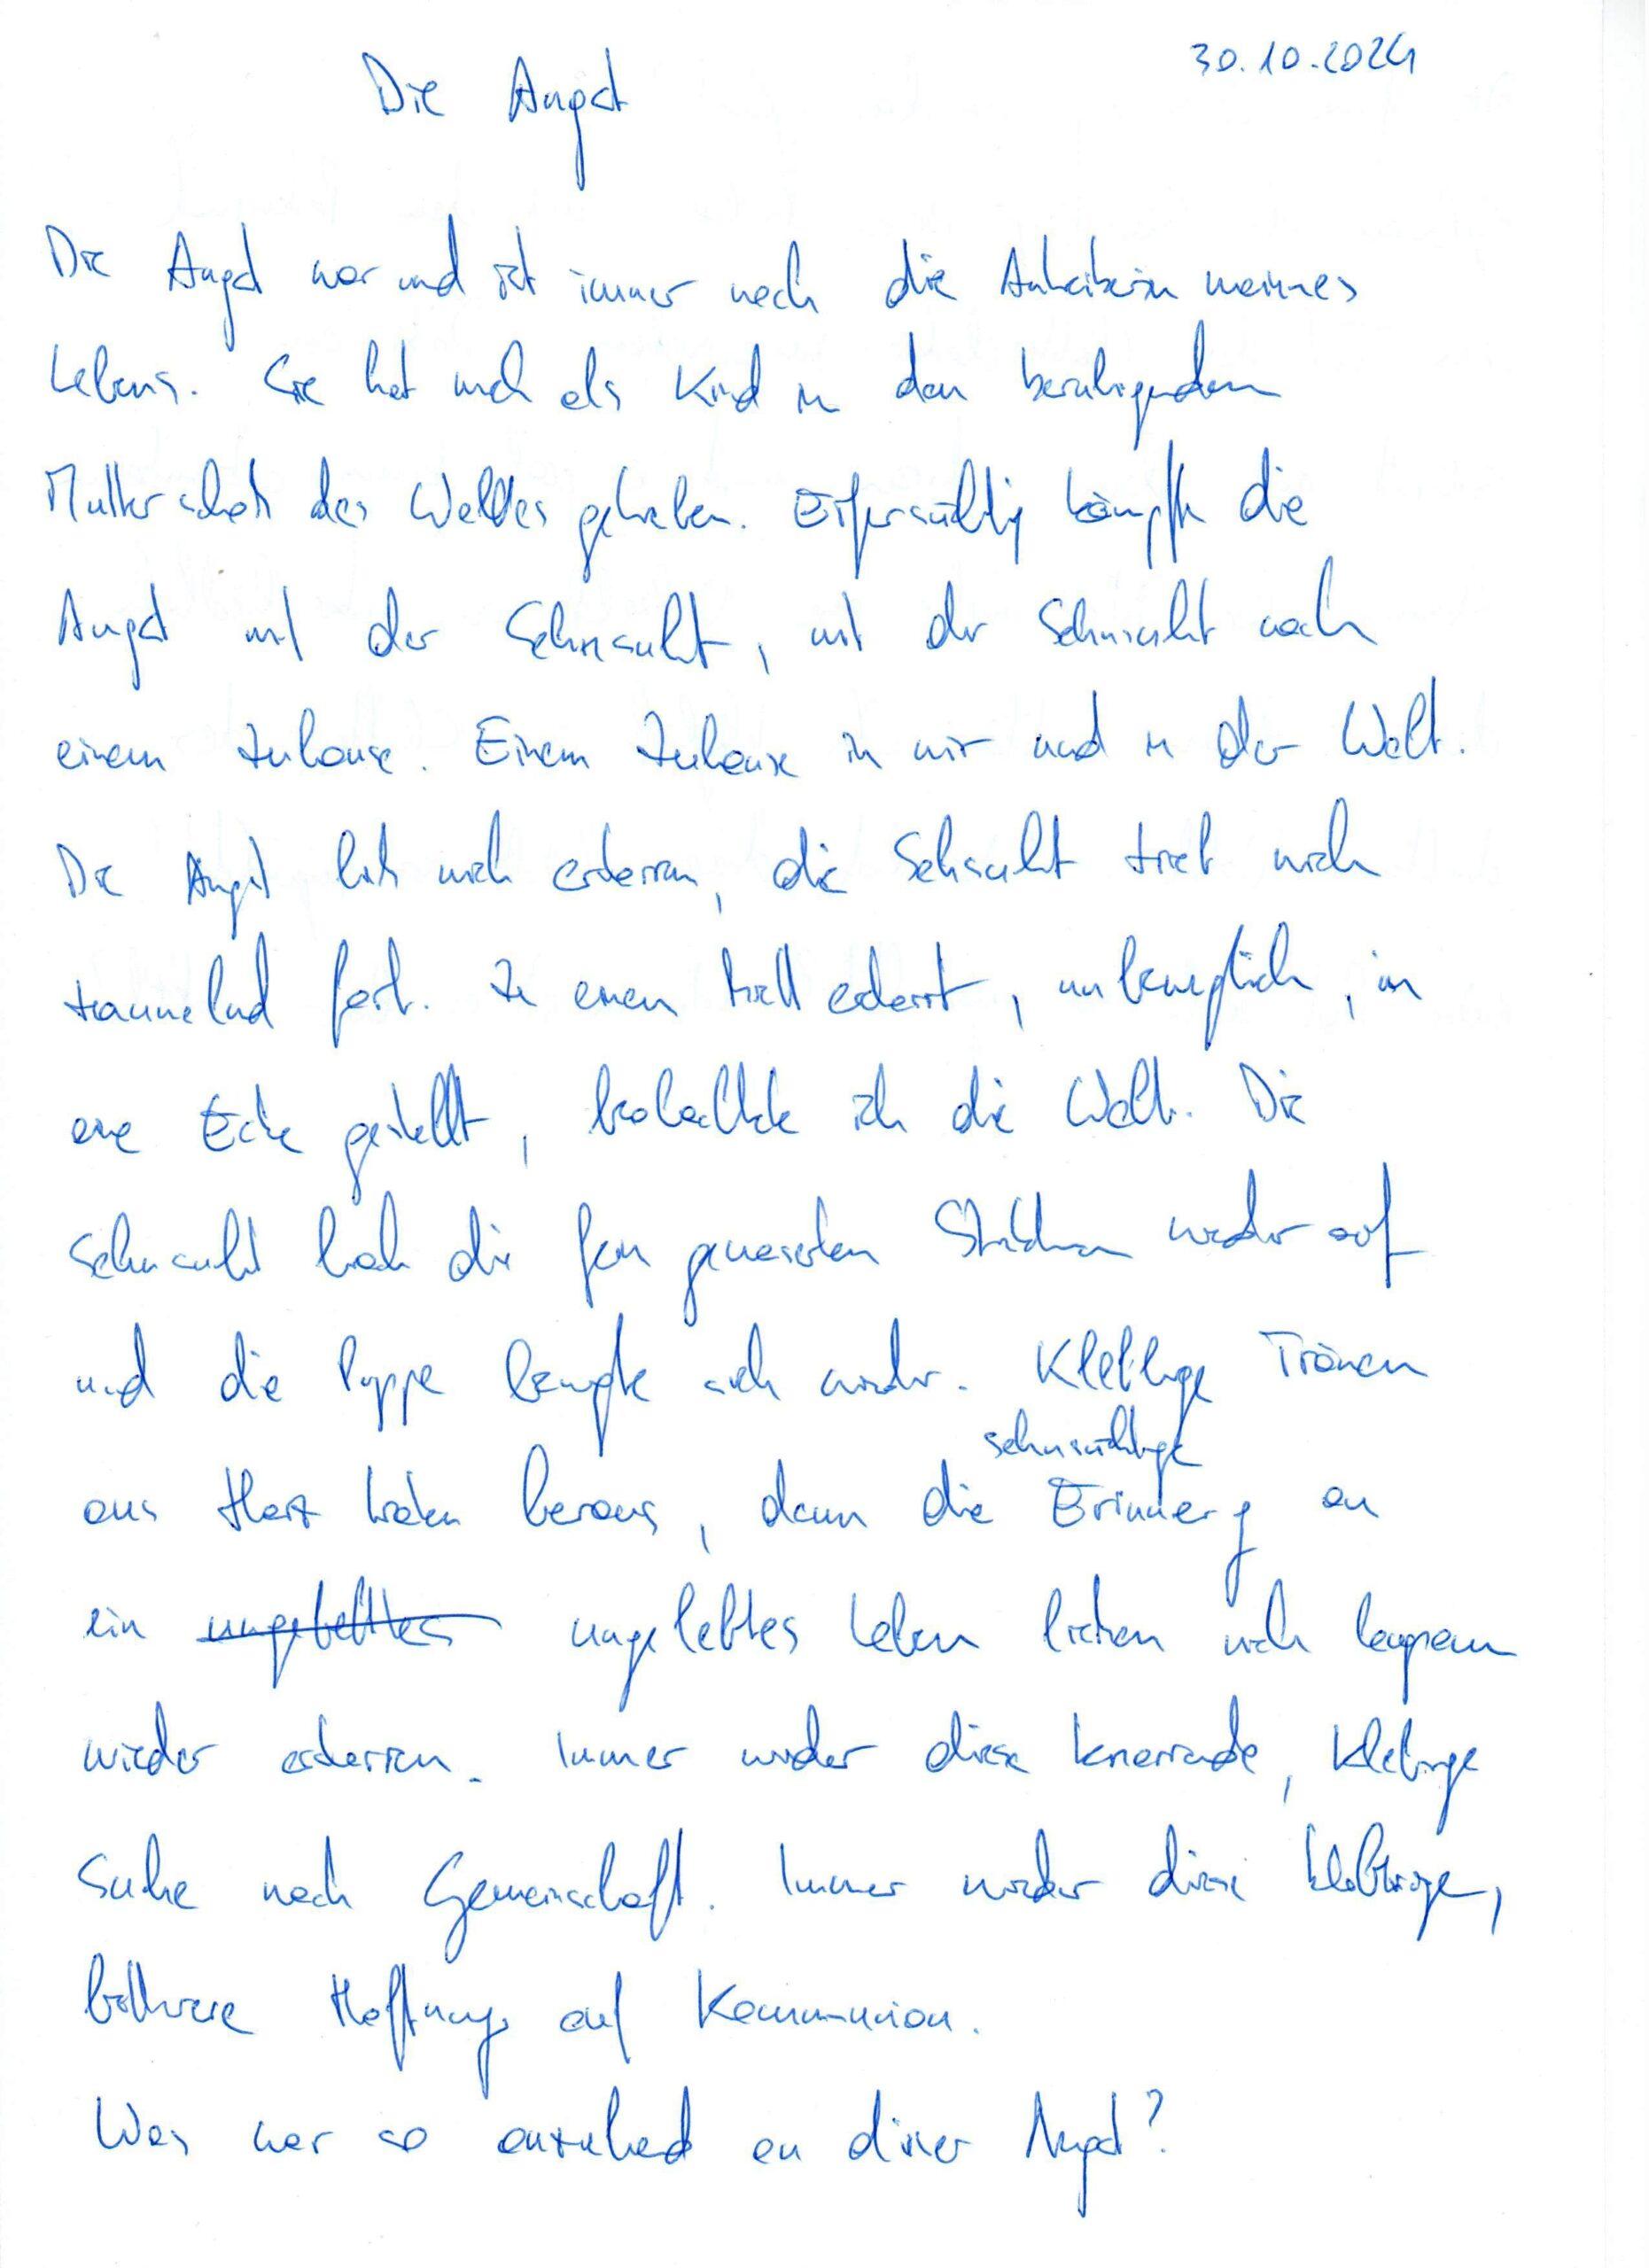 30.10.2024
Die Angst
Die Angst war und ist immer noch die Antreiberin meines
Lebens. Sie hat mich als Kind in den beruhigenden
Mutterschoß des Waldes getrieben. Eifersüchtig kämpfte die
Angst mit der Sehnsucht, mit der Sehnsucht nach
einem Zuhause. Einem Zuhause in mir und in der Welt.
Die Angst ließ mich erstarren, die Sehsucht trieb mich
taumelnd fort. Zu einem erstarrt, unbeweglich, in
eine Ecke gestellt, beobachtete ich die Welt. Die
Sehnsucht brach die gewordenen wieder auf
und die Puppe bewegte sich wieder. Klebrige Tränen
aus Harz traten heraus, dann die
sehnsüchtige
Erinnerung an
ein ungelebtes Leben ließen mich langsam
wieder erstarren. Immer wieder diese knarrende, klebrige
Suche nach Gemeinschaft. Immer wieder diese klebrige,
bittere Hoffnung auf Kommunion.
Was war so anziehend an dieser Angst?